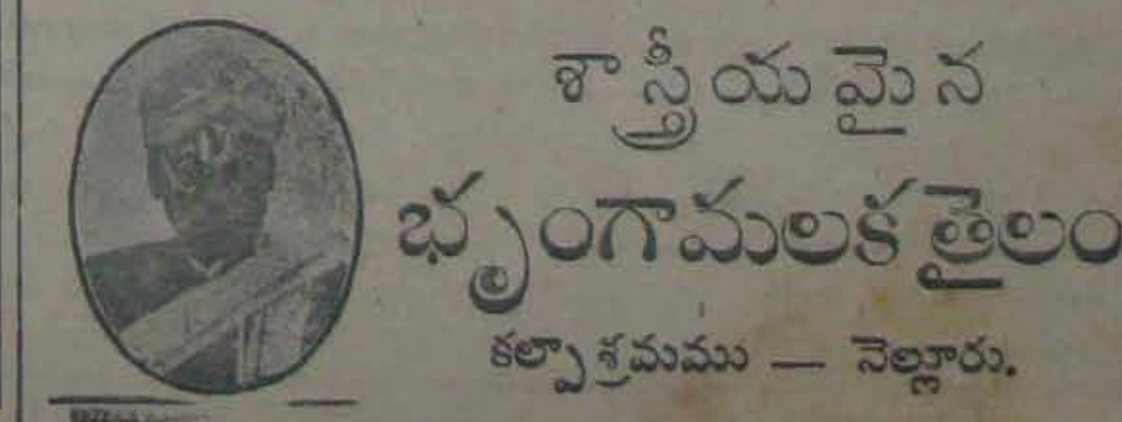 శాస్త్రీయమైన
భృంగామలక తైలం
కల్పాశ్రమము — నెల్లూరు.